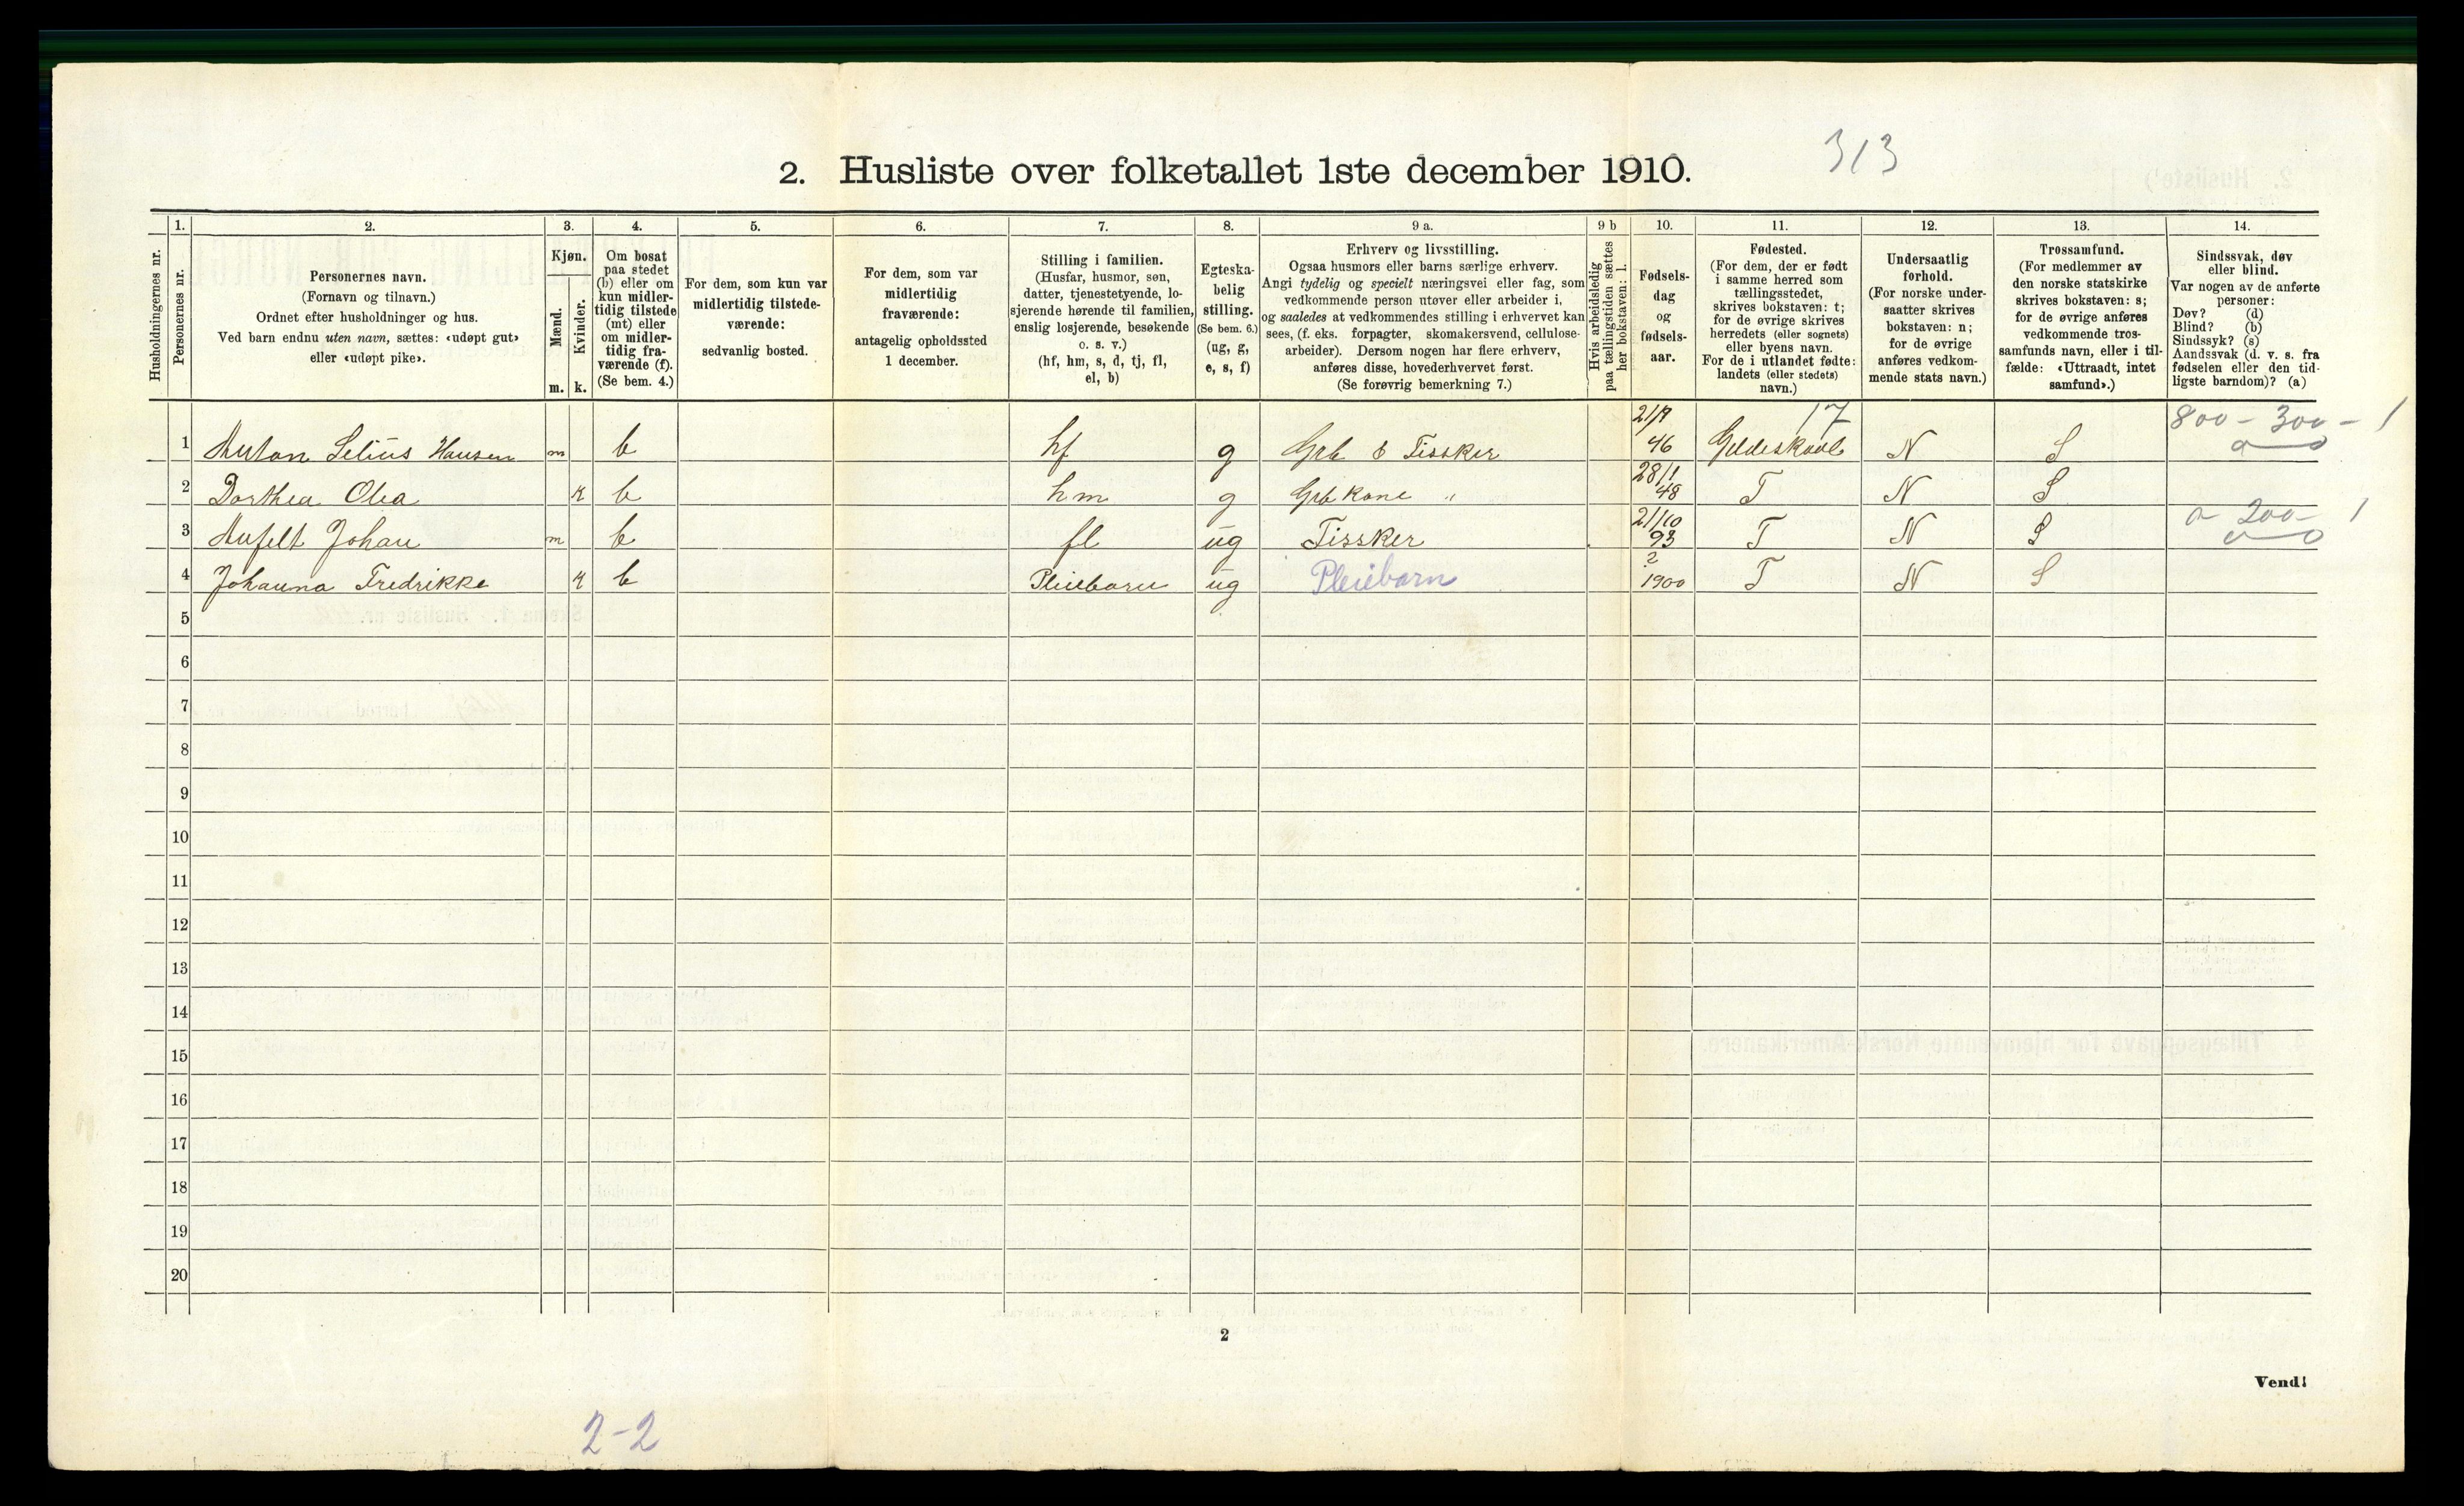 313
2. Husliste over folketallet 1ste december 1910.
1. 2. 3. 4. 5. 6. 7. 8. 9 a. 9 b 10. 11. 12. 13. 14.
Husholdningernes nr.
Personernes nr.
Personernes navn.
(Fornavn og tilnavn.)
Ordnet efter husholdninger og hus.
Ved barn endnu uten navn, sættes: «udøpt gut»
eller «udøpt pike».
Kjøn.
Mænd.
Kvinder.
m. k.
Om bosat
paa stedet
(b) eller om
kun midler-
tidig tilstede
(mt) eller
om midler-
tidig fra-
værende (f).
(Se bem. 4.)
For dem, som kun var
midlertidig tilstede-
værende:
sedvanlig bosted.
For dem, som var
midlertidig
fraværende:
antagelig opholdssted
1 december.
Stilling i familien.
(Husfar, husmor, søn,
datter, tjenestetyende, lo-
sjerende hørende til familien,
enslig losjerende, besøkende
o. s. v.)
(hf, hm, s, d, tj, fl,
el, b)
Egteska-
belig
stilling.
(Se bem. 6.)
(ug, g,
e, s, f)
Erhverv og livsstilling.
Ogsaa husmors eller barns særlige erhverv.
Angi tydelig og specielt næringsvei eller fag, som
vedkommende person utøver eller arbeider i,
og saaledes at vedkommendes stilling i erhvervet kan
sees, (f. eks. forpagter, skomakersvend, cellulose-
arbeider). Dersom nogen har flere erhverv,
anføres disse, hovederhvervet først.
(Se forøvrig bemerkning 7.)
Hvis arbeidsledig
paa tællingstiden sættes
her bokstaven: l.
Fødsels-
dag
og
fødsels-
aar.
Fødested.
(For dem, der er født
i samme herred som
tællingsstedet,
skrives bokstaven: t;
for de øvrige skrives
herredets (eller sognets)
eller byens navn.
For de i utlandet fødte:
landets (eller stedets)
navn.)
Undersaatlig
forhold.
(For norske under-
saatter skrives
bokstaven: n;
for de øvrige
anføres vedkom-
mende stats navn.)
Trossamfund.
(For medlemmer av
den norske statskirke
skrives bokstaven: s;
for de øvrige anføres
vedkommende tros-
samfunds navn, eller i til-
fælde: «Uttraadt, intet
samfund».)
Sindssvak, døv
eller blind.
Var nogen av de anførte
personer:
Døv? (d)
Blind? (b)
Sindssyk? (s)
Aandssvak (d. v. s. fra
fødselen eller den tid-
ligste barndom)? (a)
17 800 - 300 - 1
1 Anton Selius Hansen m b hf g Grb & Fissker 46 Gildeskaal N S
2 Dorthea Olea k b hm g Grb kone " 28/1 48 T N S
3 Aufelt Johan m b fl ug Fissker 21/10 93 T N S 200 - 1
4 Johanna Fredrikke k b Pleiebarn ug Pleiebarn ? 1900 T N S
5
6
7
8
9
10
11
12
13
14
15
16
17
18
19
20
2
Vend!
2-2